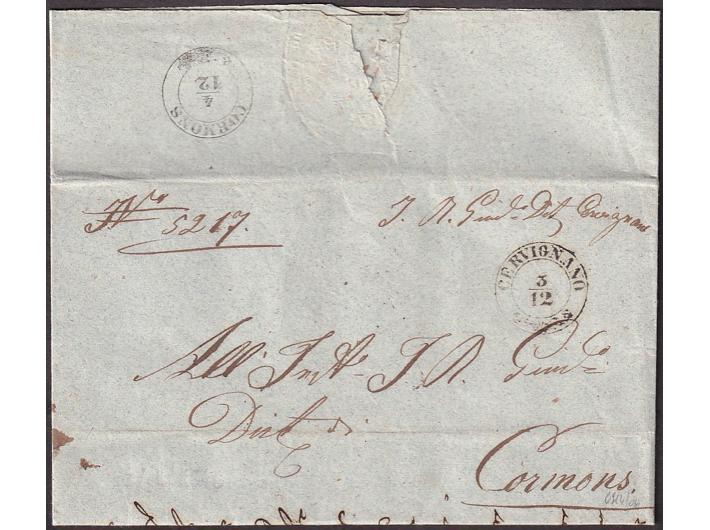 CORMONS
4
12
No 5217.
I. R. Giud. Dist Cervignano
CERVIGNANO
3
12
All' I. R. Giud.
Dist di
Cormons.